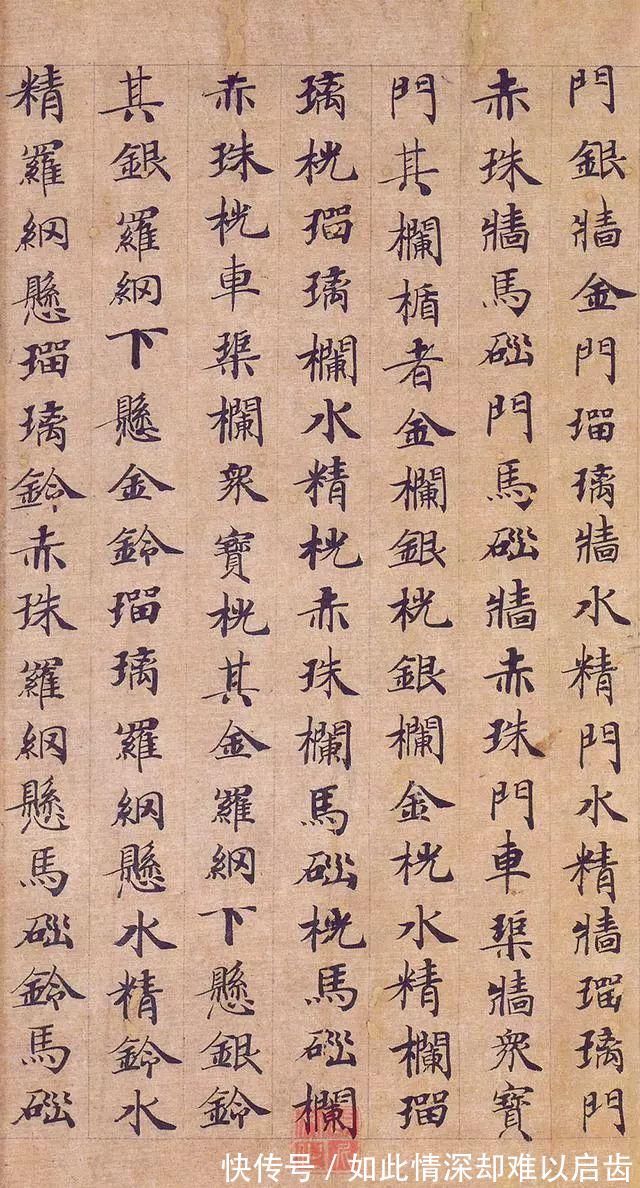 門銀牆金門瑠璃牆水精門水精牆瑠璃門
赤珠牆馬碯門馬碯牆赤珠門車𤦲牆衆寶
門其欄楯者金欄銀桄銀欄金桄水精欄瑠
璃桄瑠璃欄水精桄赤珠欄馬碯桄馬碯欄
赤珠桄車𤦲欄衆寶桄其金羅網下懸銀鈴
其銀羅網下懸金鈴瑠璃羅網懸水精鈴水
精羅網懸瑠璃鈴赤珠羅網懸馬碯鈴馬碯
快传号 / 如此情深却难以启齿